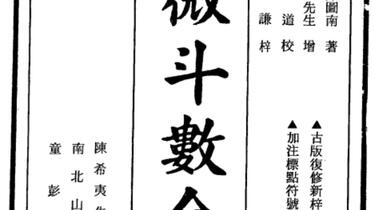 圖南著
先生增
道校
謙梓
▲古版復修新梓
▲加注標點符號
微斗數
陳希夷
南北山
童彭